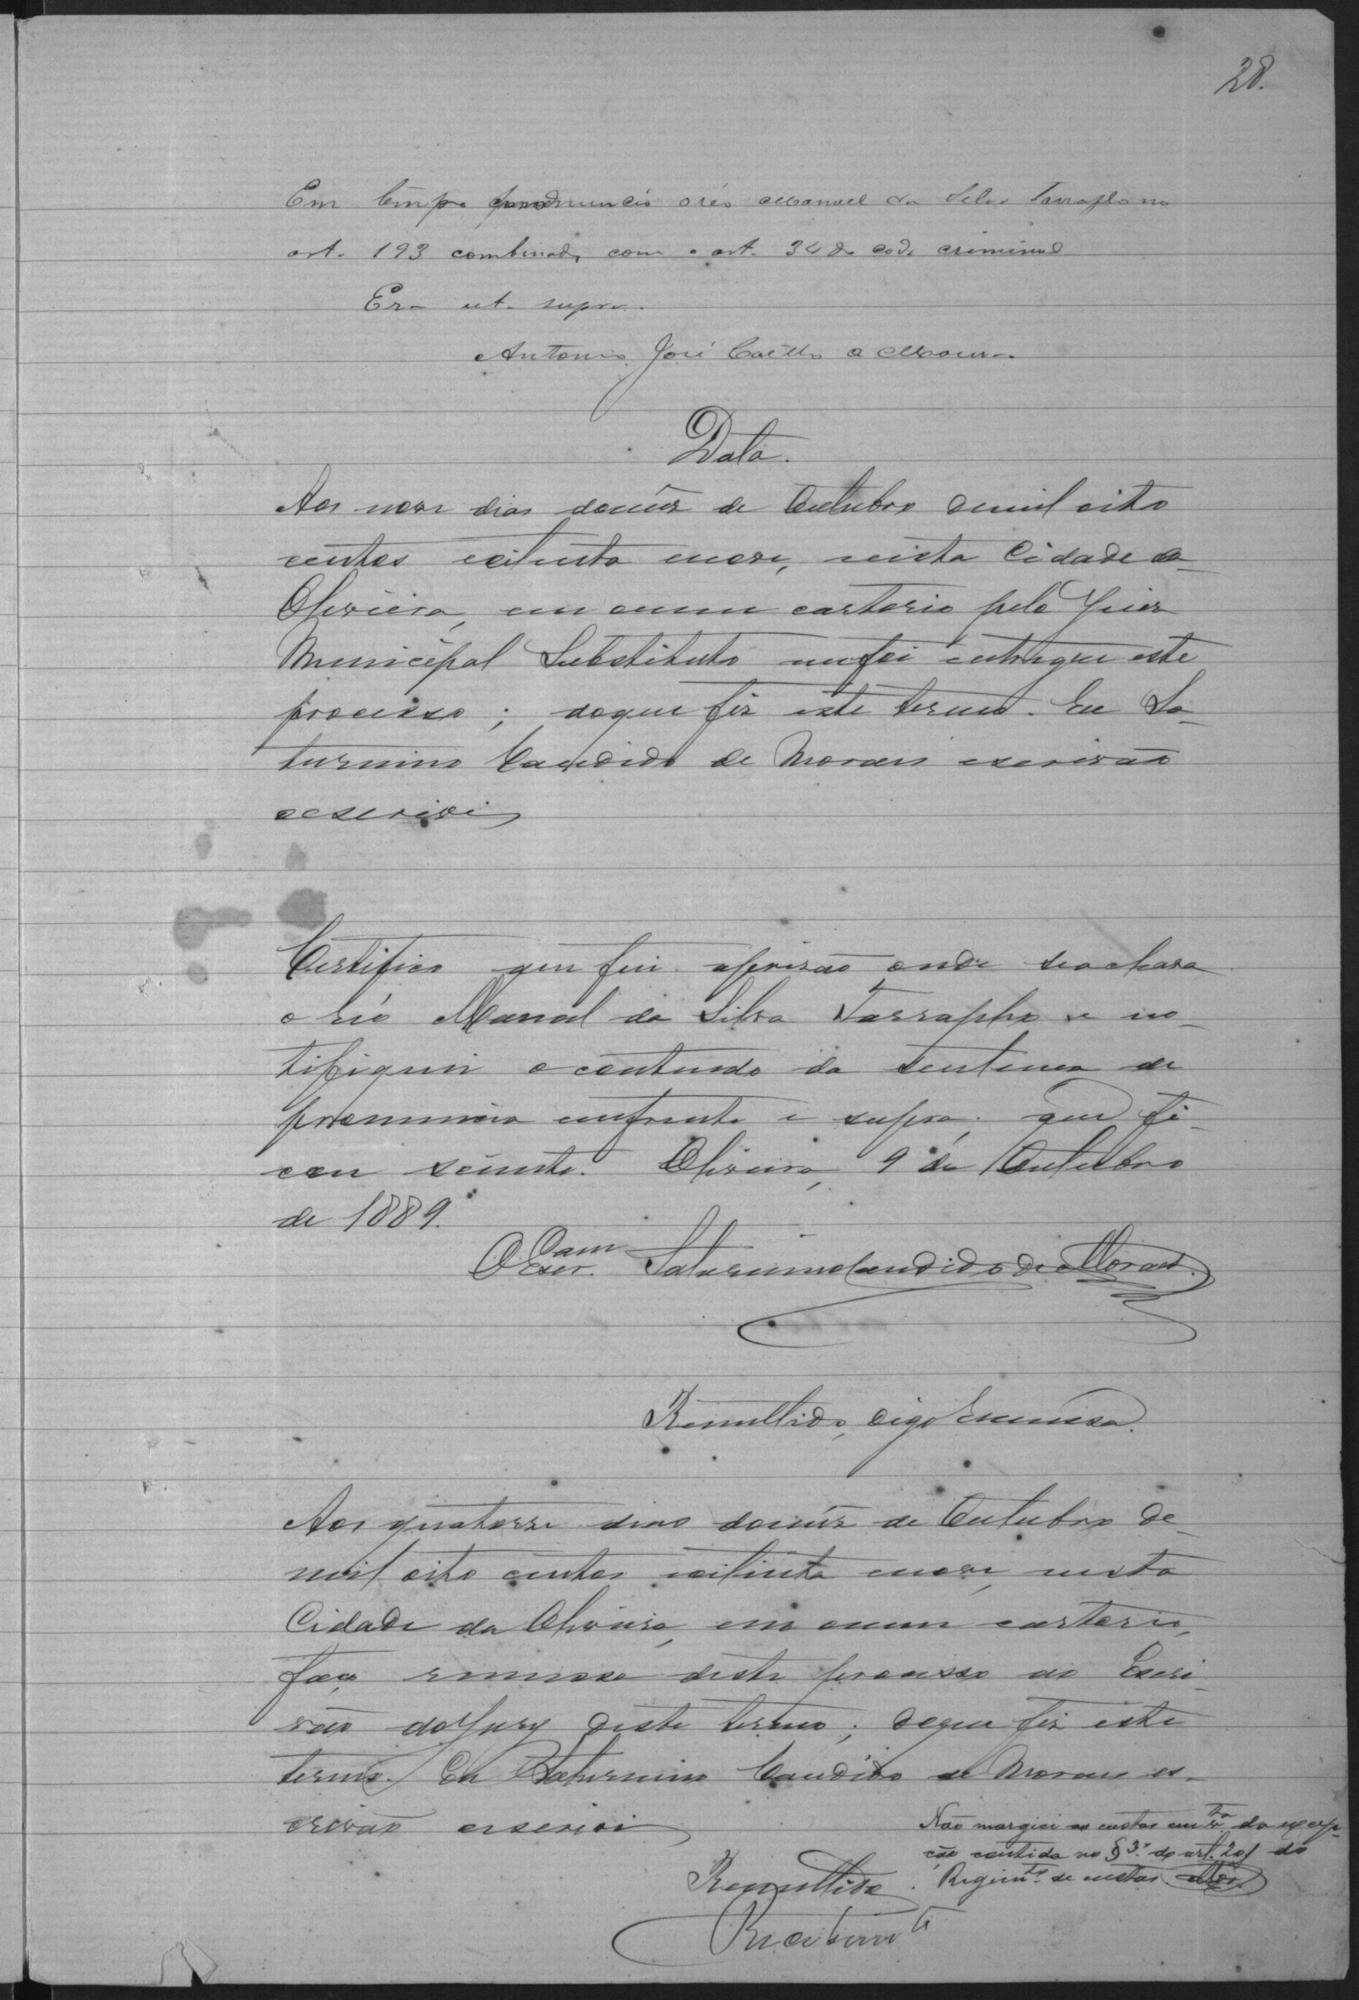 28.
Em tempo pronuncio o réo Manoel da Silva Tarrapho no
art. 193 combinado com o art. 34 do cod. criminal
Era ut supra.
Antonio José Coelho e Moura.
Data.
Aos nove dias do mêz de Outubro de mil oito
centos e oitenta e nove, nesta Cidade da
Oliveira, em o meu cartorio pelo Juiz
Municipal Substituto me foi entregue este
processo; do que fiz este termo. Eu Sa-
turnino Candido de Moraes escrivão
o escrivi
Certifico que fui a prisão onde se achava
o réo Manoel da Silva Tarrapho e no-
tifiquei o conteudo da sentença de
pronuncia emfrente e supra, que fi-
cou sciente. Oliveira, 9 de Outubro
de 1889.
O Escr.am Saturnino Candido de Moraes.
Remettido, digo Remessa.
Aos quatorze dias do mêz de Outubro de
mil oito centos e oitenta e nove, nesta
Cidade da Oliveira, em o meu cartorio,
faço remessa deste processo ao Escri-
vão do Jury deste termo; do que fiz este
termo. Eu Saturnino Candido de Moraes es-
crivão o escrivi
Não margiei as custas em vta. da excep-
ção contida no § 3º do art. 201 do
Regimto. de custas
Remettido.
Recebimto